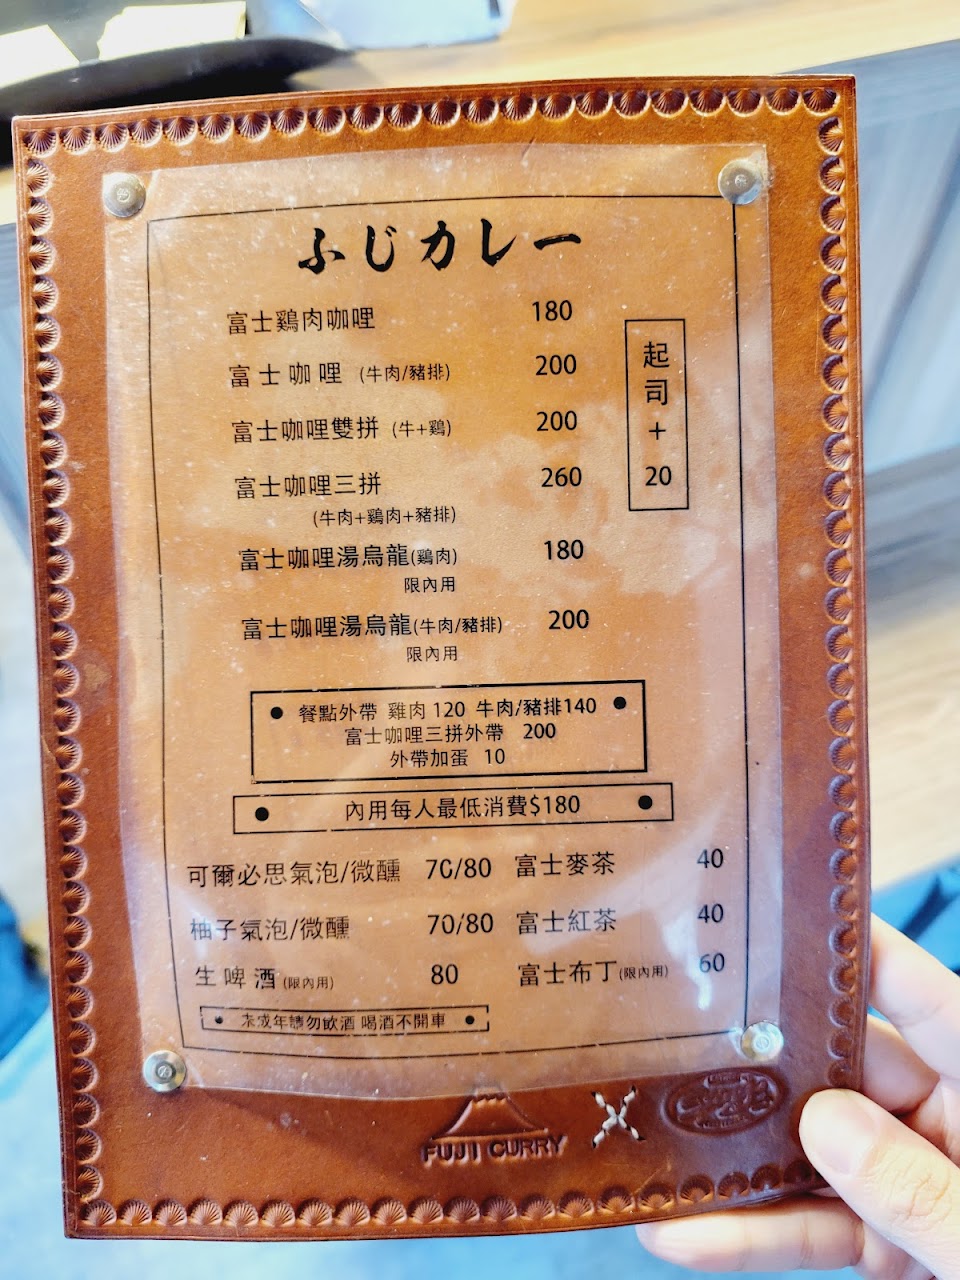 ふじカレー
富士鷄肉咖哩 180
富士咖哩 (牛肉/豬排) 200
富士咖哩雙拼 (牛+鷄) 200
富士咖哩三拼 260
(牛肉+鷄肉+豬排)
起司+20
富士咖哩湯烏龍(鷄肉) 180
限內用
富士咖哩湯烏龍(牛肉/豬排) 200
限內用
● 餐點外帶 雞肉 120 牛肉/豬排140 ●
富士咖哩三拼外帶 200
外帶加蛋 10
● 內用每人最低消費$180 ●
可爾必思氣泡/微醺 70/80 富士麥茶 40
柚子氣泡/微醺 70/80 富士紅茶 40
生啤酒(限內用) 80 富士布丁(限內用) 60
● 未成年請勿飲酒 喝酒不開車 ●
FUJI CURRY